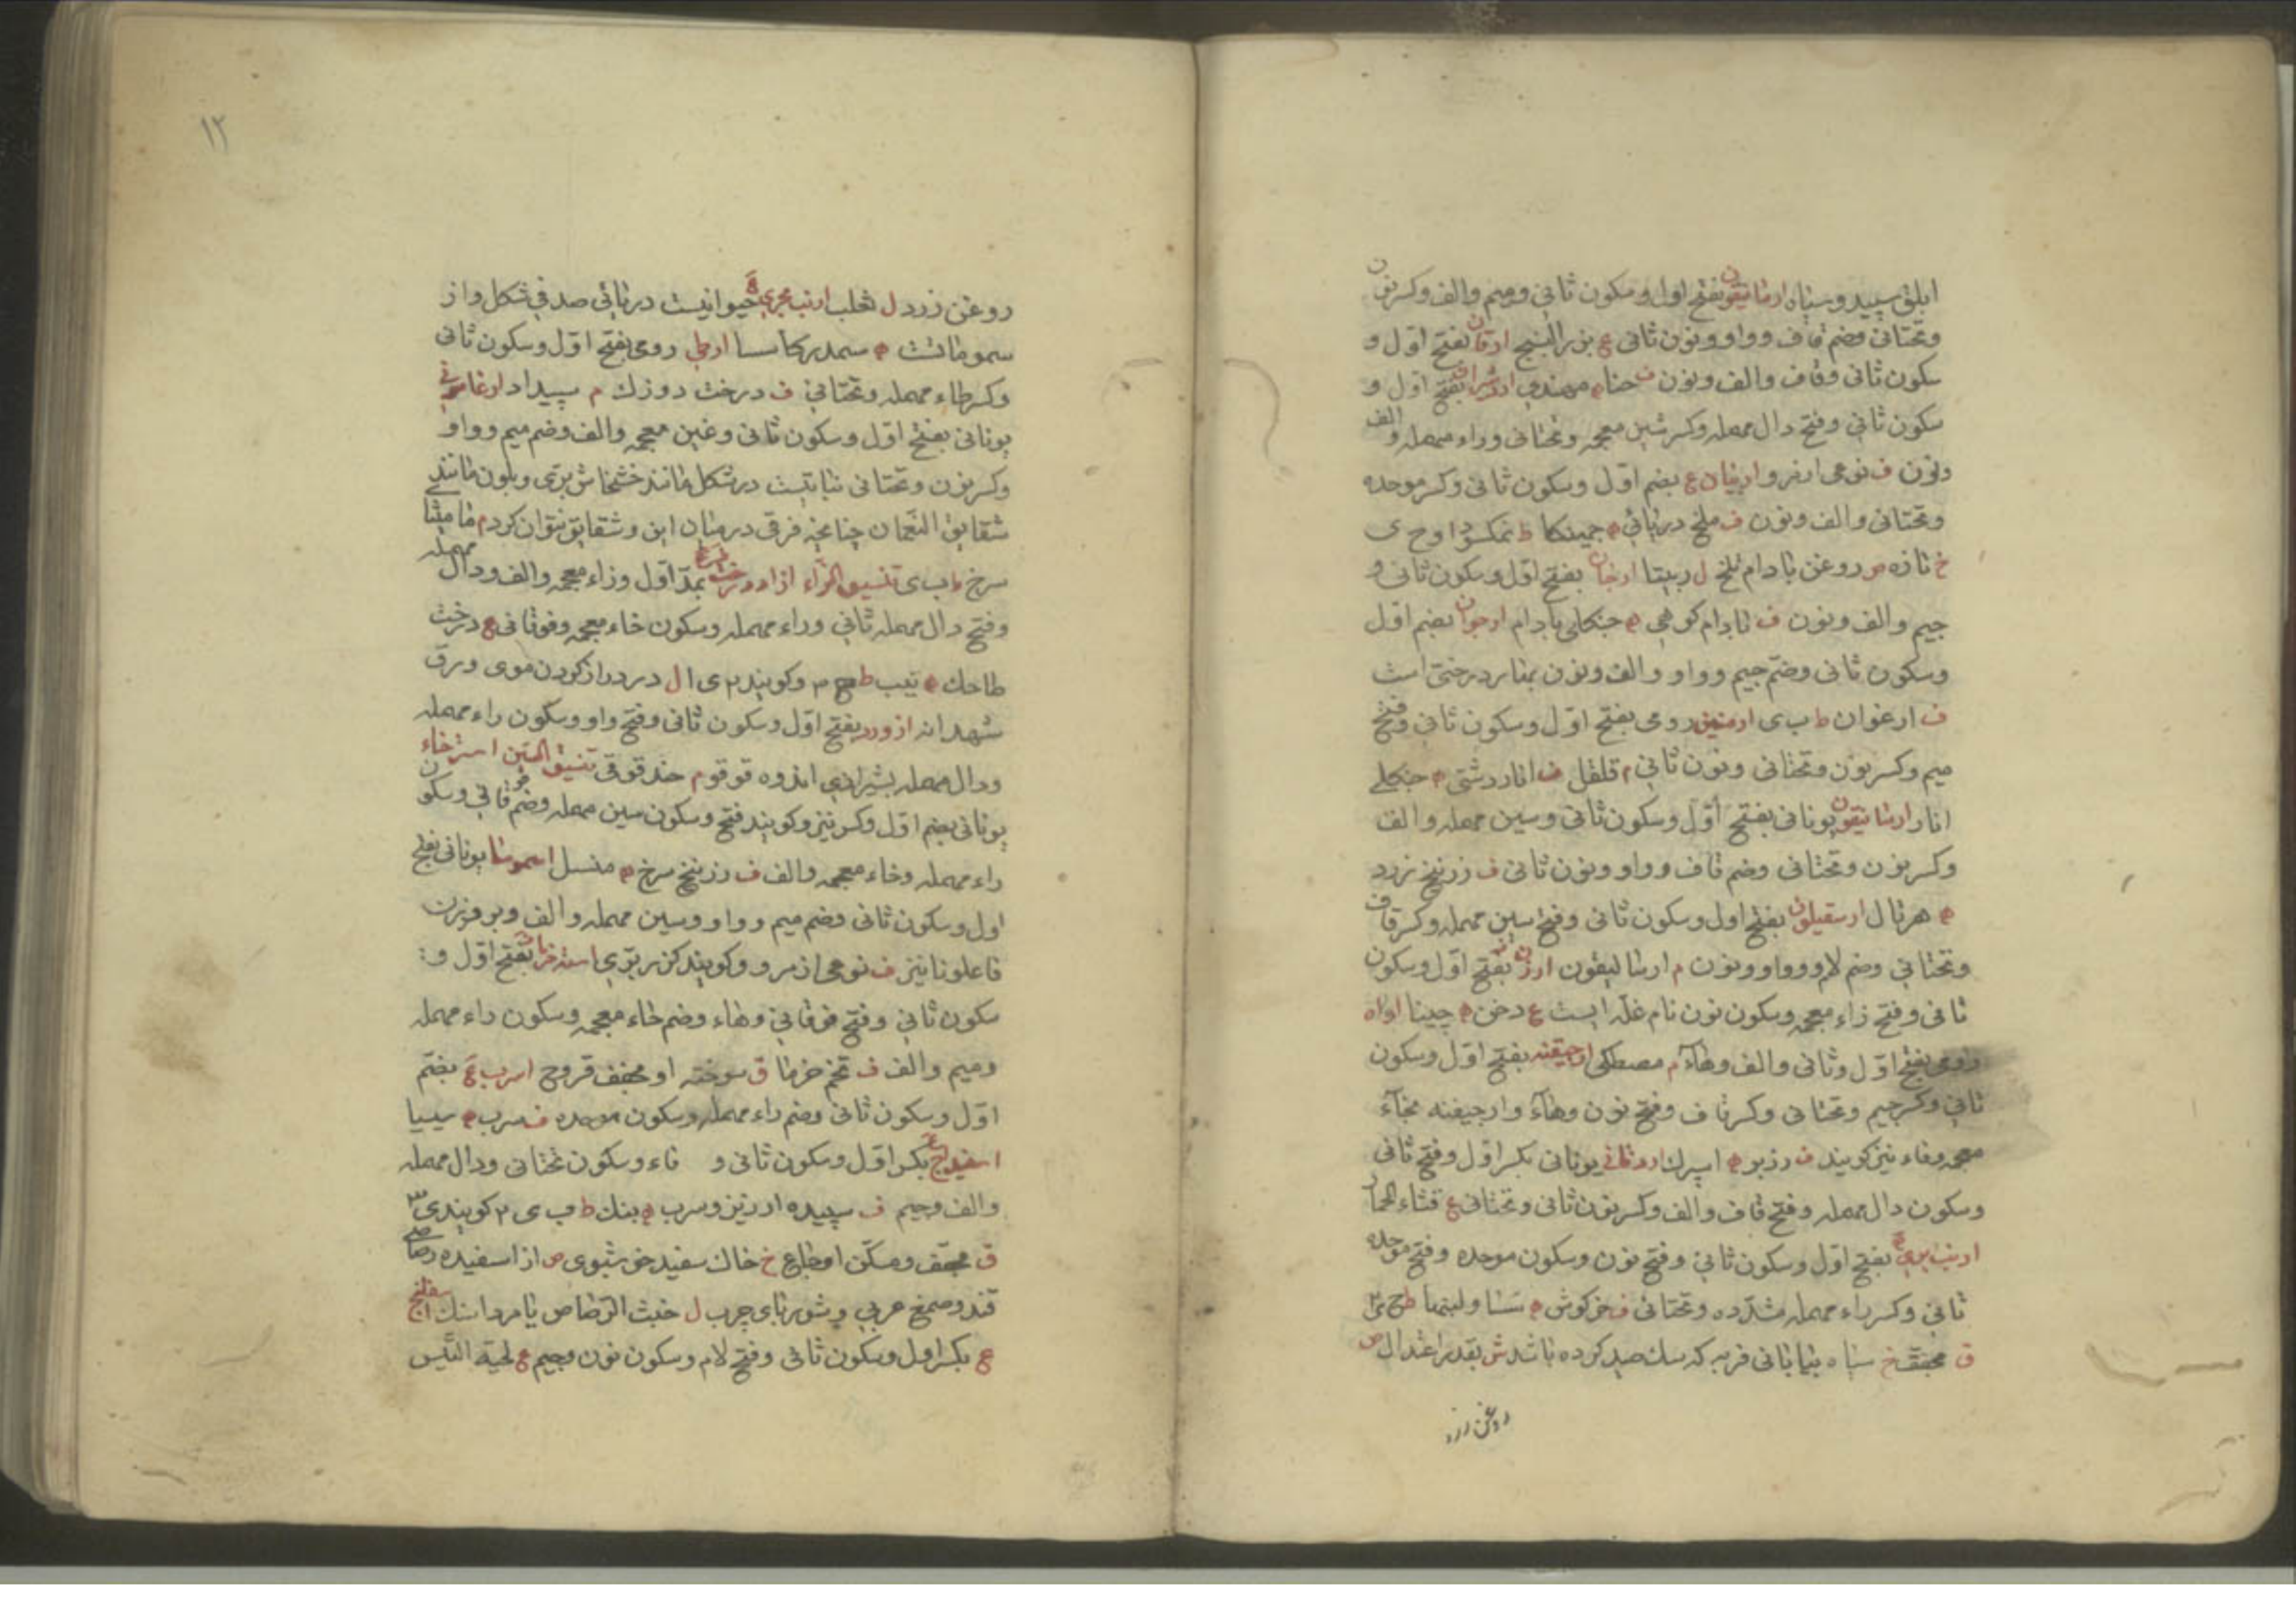 ابلق سپید و سیاه ارمانیقون بفتح اول و سکون ثانی و میم و الف و کسر نون
و تحتانی و ضم قاف و واو و نون ثانی ع بزر البنج ارقان بفتح اول و
سکون ثانی و قاف و الف و نون ف حنا ه مهندی اردشیران بفتح اول و
سکون ثانی و فتح دال مهمله و کسر شین معجمه و تحتانی و راء مهمله و الف
و نون ف نوعی از مرو اربیان ع بضم اول و سکون ثانی و کسر موحده
و تحتانی و الف و نون ف ملخ دریائی ه جهینکا ط نمکسود او ح ی
خ تازه ص روغن بادام تلخ ل ربیتا ارجان بفتح اول و سکون ثانی و
جیم و الف و نون ف بادام کوهی ه جنکلی بادام ارجوان بضم اول
و سکون ثانی و ضم جیم و واو و الف و نون بهار درختی است
ف ارغوان ط ب ی ارمنین رومی بفتح اول و سکون ثانی و فتح
میم و کسر نون و تحتانی و نون ثانی م قلقل ف انار دشتی ه جنکلی
انار ارسانیقون یونانی بفتح اول و سکون ثانی و سین مهمله و الف
و کسر نون و تحتانی و ضم قاف و واو و نون ثانی ف زرنیخ زرد
ه هرتال ارسقیلون بفتح اول و سکون ثانی و فتح سین مهمله و کسر قاف
و تحتانی و ضم لام و واو و نون م ارسالیقون ارزن بفتح اول و سکون
ثانی و فتح زاء معجمه و سکون نون نام غله ایست ع دخن ه چینا اراه
رومی بفتح اول و ثانی و الف و هاء م مصطکی ارجیقنه بفتح اول و سکون
ثانی و کسر جیم و تحتانی و کسر قاف و فتح نون و هاء و ارجیفنه بخاء
معجمه و فاء نیز کویند ف زریر ه اسپرک ارد قانی یونانی بکسر اول و فتح ثانی
و سکون دال مهمله و فتح قاف و الف و کسر نون ثانی و تحتانی ع قثاء الحمار
ارنب بری ع بفتح اول و سکون ثانی و فتح نون و سکون موحده و فتح موحده
ثانی و کسر راء مهمله مشدده و تحتانی ف خرکوش ه سسا و لبنها ط ح ی ۲
ق مجفف خ سیاه بیابانی فربه که سک صید کرده باشد ش بقدر اعتدال ص
روغن زرد
۱۲
روغن زرد ل ثعلب ارنب بحری ع حیوانیست دریائی صدفی شکل و از
سمومات است ه سمدر کا سسا ارطی رومی بفتح اول و سکون ثانی
و کسر طاء مهمله و تحتانی ف درخت دوزک م سپیدار ارغامونی
یونانی بفتح اول و سکون ثانی و غین معجمه و الف و ضم میم و واو
و کسر نون و تحتانی نباتیست در شکل مانند خشخاش بری و بلون مانند
شقایق النعمان چنانچه فرقی درمیان این و شقایق نتوان کرد م مامیثا
سرخ ط ب ی تنسیق الزاء ازاددرخت بمد اول و زاء معجمه و الف و دال مهمله
و فتح دال مهمله ثانی و راء مهمله و سکون خاء معجمه و فوقانی ع درخت
طاحک ه نیب ط ح ۳ و کویند ۲ ی ا ل در دراز کردن موی ورق
شهدانه ازورد بفتح اول و سکون ثانی و فتح واو و سکون راء مهمله
و دال مهمله بشیرازی انده قوقو م حندقوقی تنسیق السین استرخاء
یونانی بضم اول و کسر نیز و کویند فتح و سکون سین مهمله و ضم فوقانی و سکون
راء مهمله و خاء معجمه و الف ف زرنیخ سرخ ه منسل اسموسا یونانی بفتح
اول و سکون ثانی و ضم میم و واو و سین مهمله و الف و بر وزن
فاعلونا نیز ف نوعی از مرو و کویند کزبر بری استه خرما بفتح اول و
سکون ثانی و فتح فوقانی و هاء و ضم خاء معجمه و سکون راء مهمله
و میم و الف ف تخم خرما ق سوخته او مجفف قروح اسرب ع بضم
اول و سکون ثانی و ضم راء مهمله و سکون موحده ف سرب ه سیسا
اسفیداج ع بکسر اول و سکون ثانی و فاء و سکون تحتانی و دال مهمله
و الف و جیم ف سپیده ارزیز و سرب ه بنک ط ب ی ۲ کویند ی ۳
ق مجفف و مسکن اوجاع خ خاک سفید خوشبوی ص از اسفیده رصاصی
قند و صمغ عربی و شوربای چرب ل خبث الرصاص یا مرداسنک اسفلنج
ع بکسر اول و سکون ثانی و فتح لام و سکون نون و جیم ع لحیة التیس